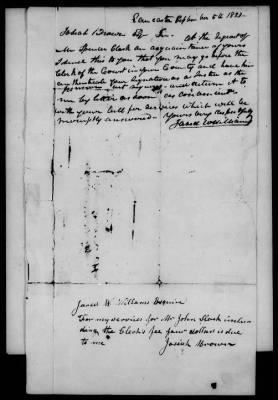 Lancaster September 5th 1833
Josiah Brower Esqr Sir At the request of
Mr Spencer Clark an acquaintance of yours
I send this to you that you may go before the
Clerk of the Court in your County and have him
authenticate your Signature as a Justice of the
peace and return it to
me by letter as soon as convenient
with your bill for services which will be
promptly answered Yours very respectfully
Jared W Williams
Jared W Williams Esquire
For my services for Mr John Stock inclu
ding the Clerks fee four dollars is due
to me Josiah Brower